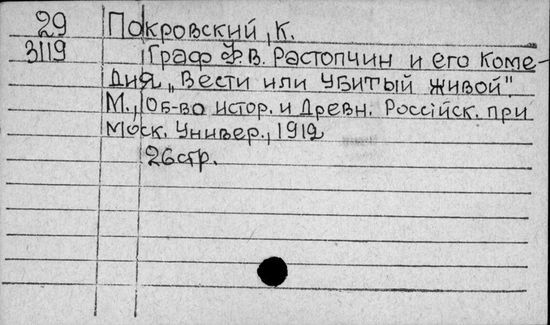 29 Покровский, К.
3119 Граф Ф.В. Растопчин и его коме-
дия „Вести или убитый живой".
М., Об-во истор. и Древн. Россійск. при
Моск. Универ., 1912
26стр.